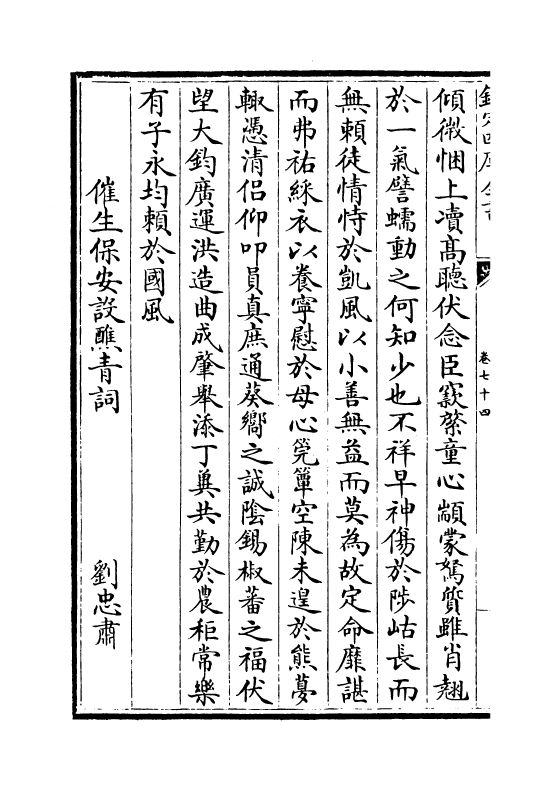 欽定四庫全書
卷七十四
傾微悃上凟髙聰伏念臣窾綮童心顓蒙駑質雖肖翹
於一氣譬蠕動之何知少也不祥早神傷於陟岵長而
無賴徒情恃於凱風以小善無益而莫為故定命靡諶
而弗祐綵衣以養寧慰於母心筦簟空陳未遑於熊夢
輙憑清侣仰叩員真庶通葵嚮之誠陰錫椒蕃之福伏
望大鈞廣運洪造曲成肇舉添丁兾共勤於農秬常樂
有子永均頼於國風
催生保安設醮青詞
劉忠肅